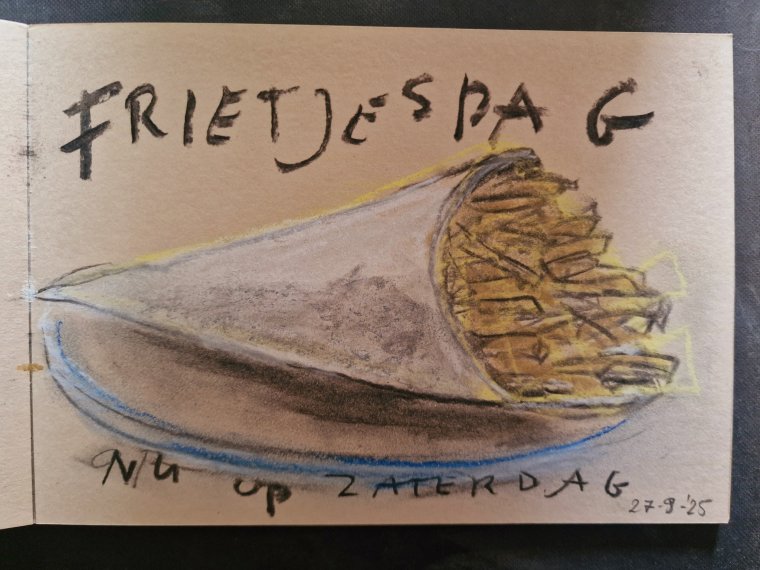 FRIETJESDAG
NU op ZATERDAG
27-9-'25